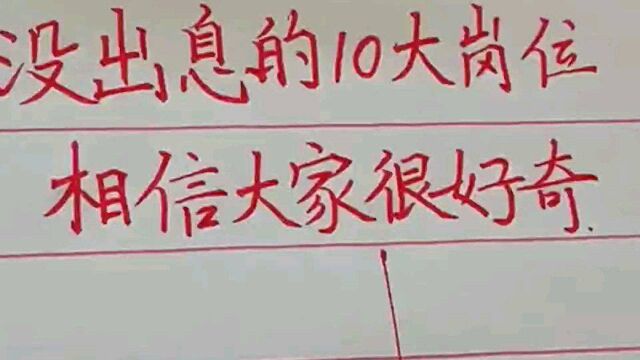 没出息的10大岗位
相信大家很好奇.